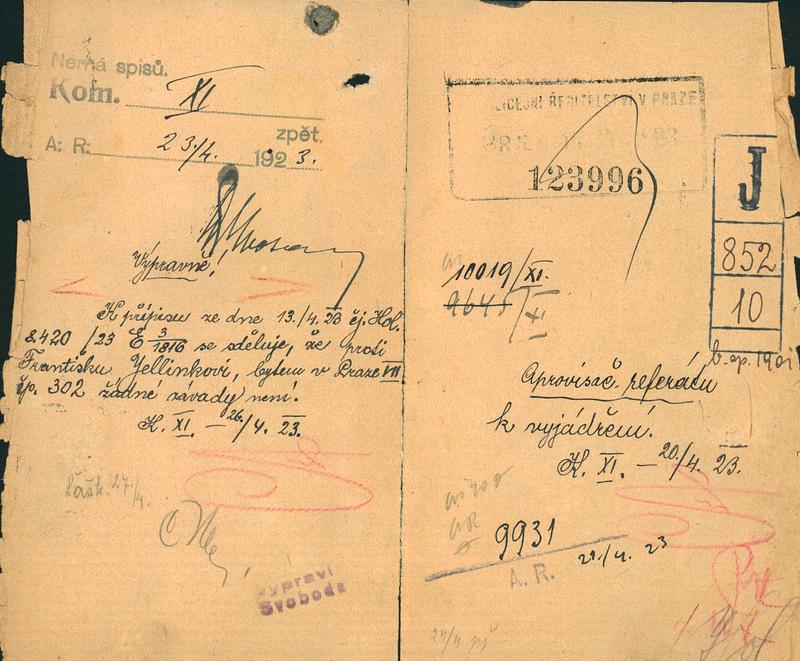 Nemá spisů.
Kom. XI
A: R: 23./4. 1923. zpět.
Výpravně!
K přípisu ze dne 13./4. 23 čj. Hol.
8420/23 E 3/1816 se sděluje, že proti
Františku Yellinkovi, bytem v Praze VII
čp. 302 žádné závady není.
K. XI. – 26./4. 23.
27/4.
vypraví
Svoboda
POLICEJNÍ ŘEDITELSTVÍ V PRAZE
123996
J
852
10
10019/XI.
9645/XI
Aprovisač. referátu
k vyjádření.
K. XI. – 20./4. 23.
9931
A. R.
21./4. 23